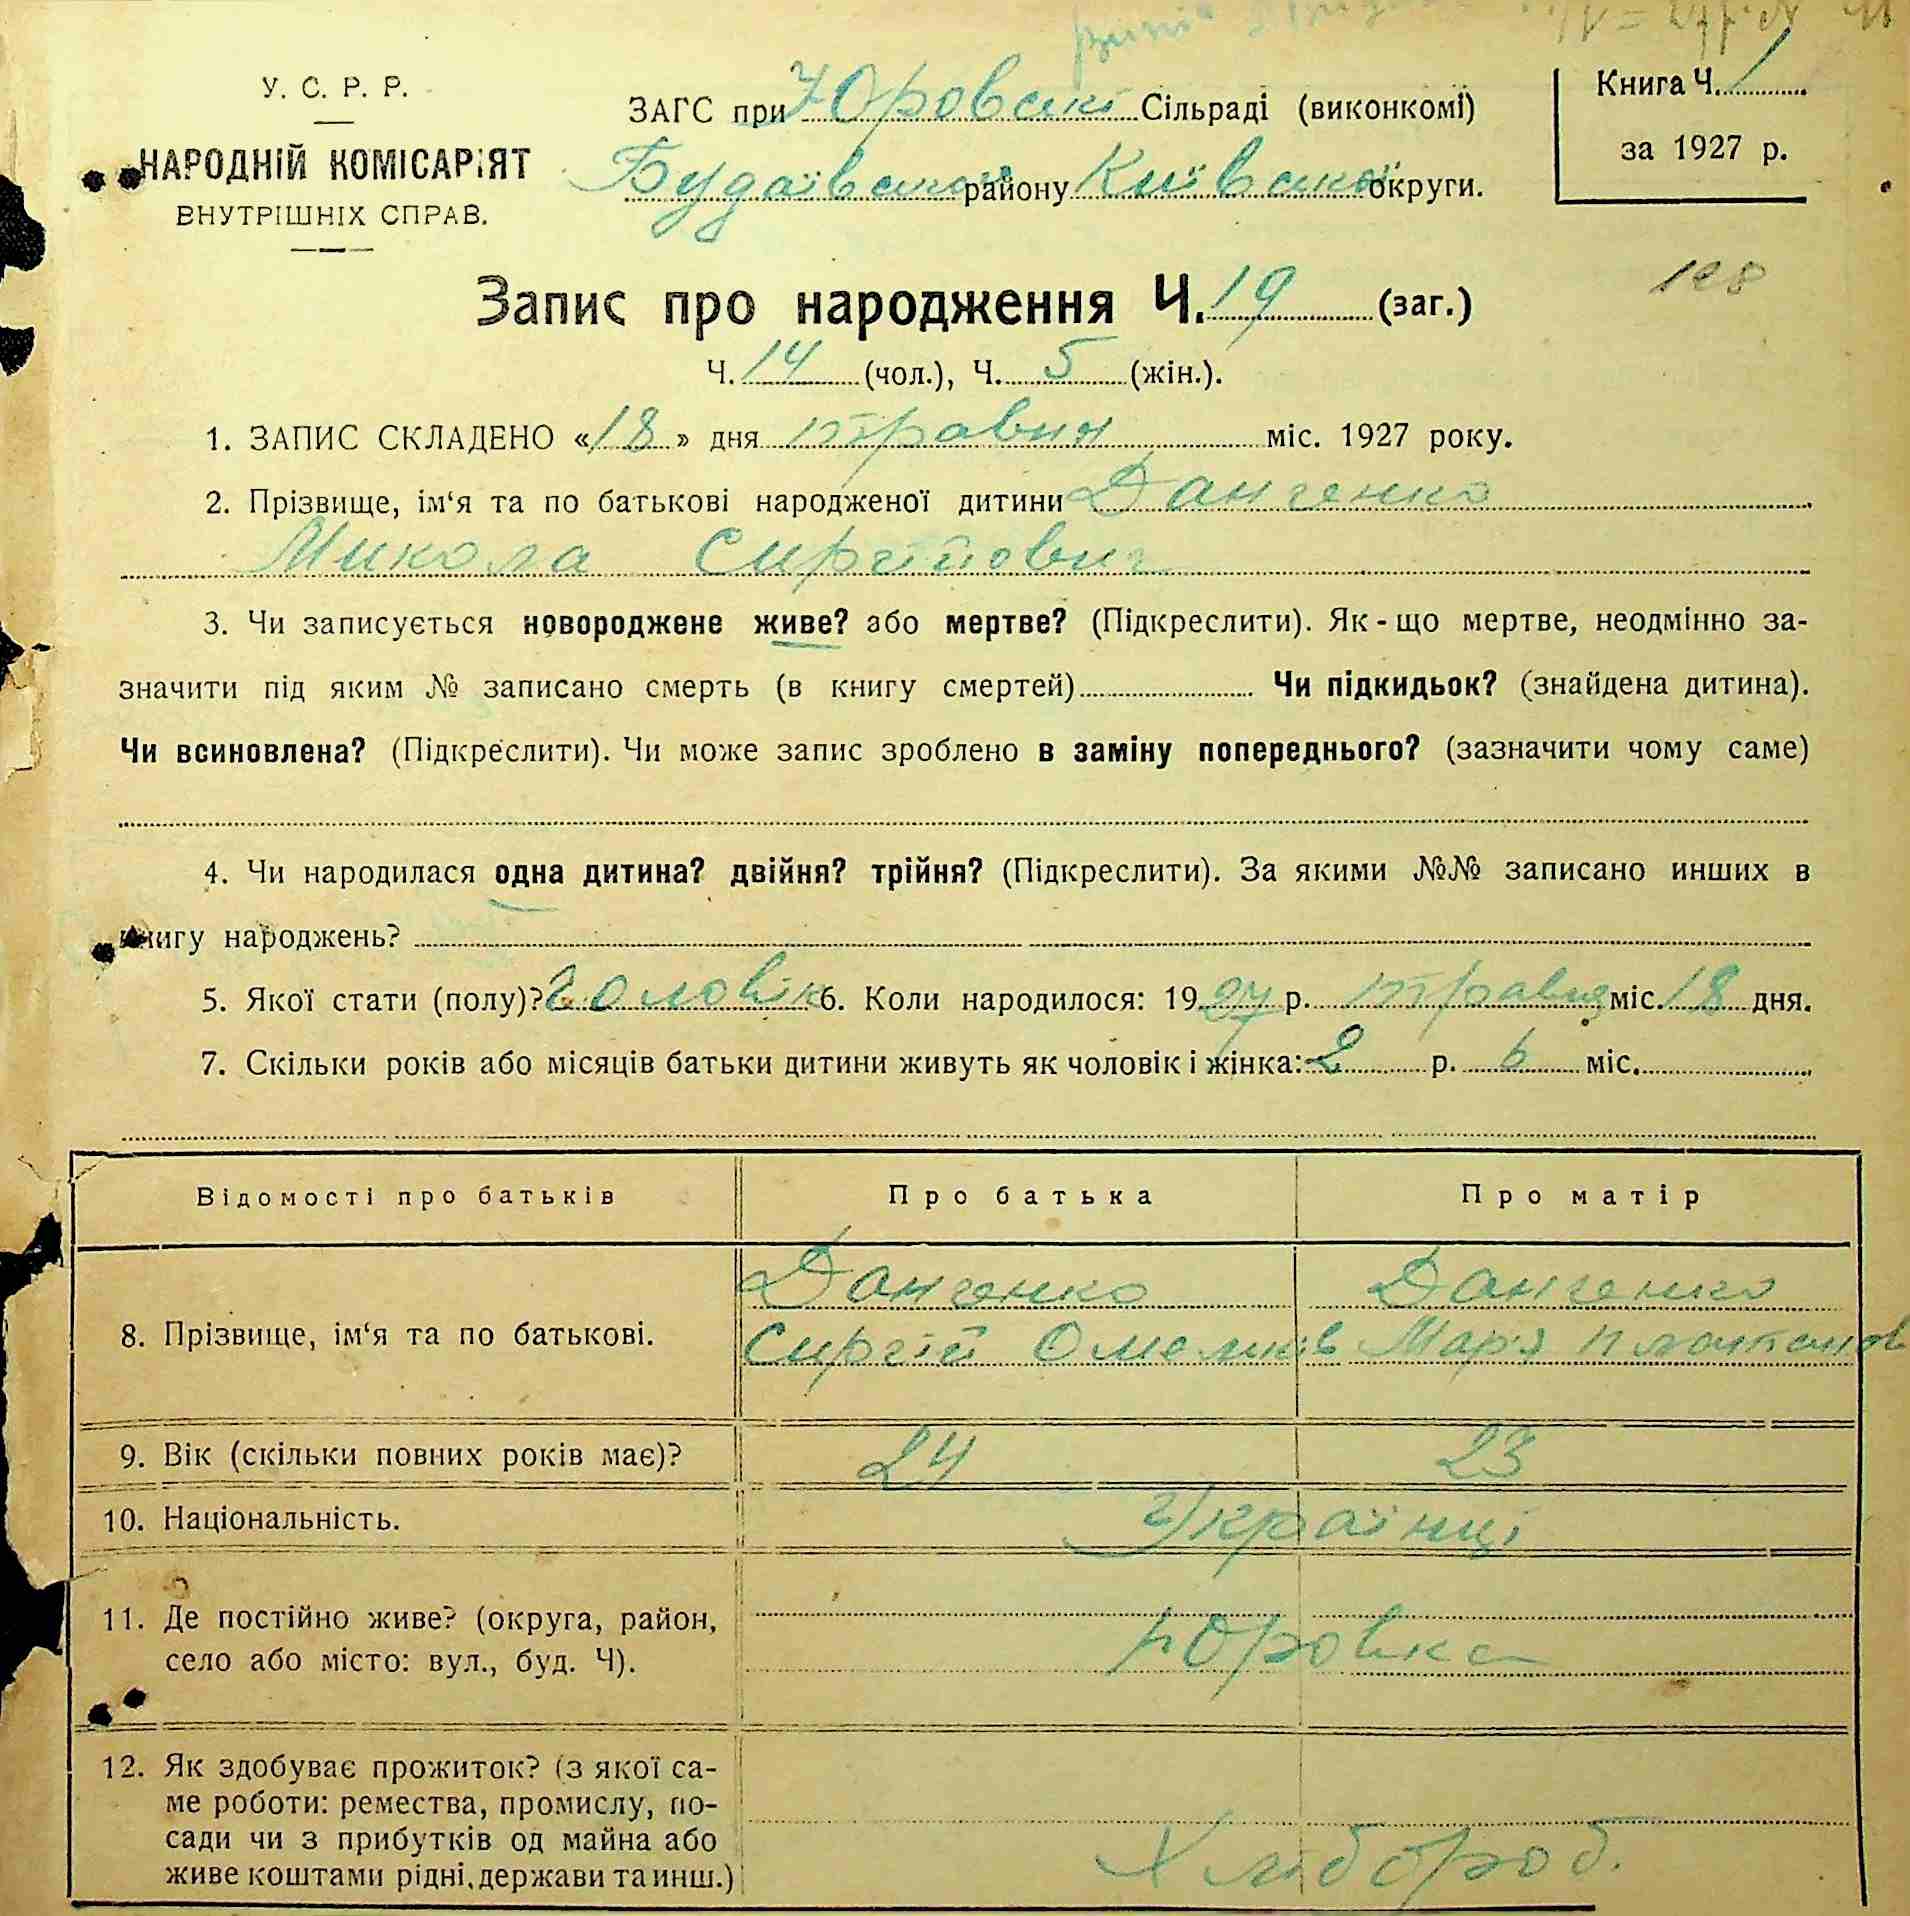 У. С. Р. Р.
НАРОДНІЙ КОМІСАРІЯТ
ВНУТРІШНІХ СПРАВ.
ЗАГС при Юровські Сільраді (виконкомі)
Будаївського району Київської округи.
Книга Ч. 1
за 1927 р.
Запис про народження Ч. 19 (заг.)
128
Ч. 14 (чол.), Ч. 5 (жін.).
1. ЗАПИС СКЛАДЕНО «18» дня травня міс. 1927 року.
2. Прізвище, ім‘я та по батькові народженої дитини Данченко
Микола Сиргійович
3. Чи записується новороджене живе? або мертве? (Підкреслити). Як-що мертве, неодмінно за-
значити під яким № записано смерть (в книгу смертей) Чи підкидьок? (знайдена дитина).
Чи всиновлена? (Підкреслити). Чи може запис зроблено в заміну попереднього? (зазначити чому саме)
4. Чи народилася одна дитина? двійня? трійня? (Підкреслити). За якими №№ записано инших в
книгу народжень?
5. Якої стати (полу)? чоловік 6. Коли народилося: 1927 р. травня міс. 18 дня.
7. Скільки років або місяців батьки дитини живуть як чоловік і жінка: 2 р. 6 міс.
Відомості про батьків Про батька Про матір
8. Прізвище, ім‘я та по батькові. Данченко Данченко
Сиргій Омельків Мар'я
9. Вік (скільки повних років має)? 24 23
10. Національність. Українці
11. Де постійно живе? (округа, район,
село або місто: вул., буд. Ч). Юровка
12. Як здобуває прожиток? (з якої са-
ме роботи: ремества, промислу, по-
сади чи з прибутків од майна або
живе коштами рідні, держави та инш.) Хлібороб.